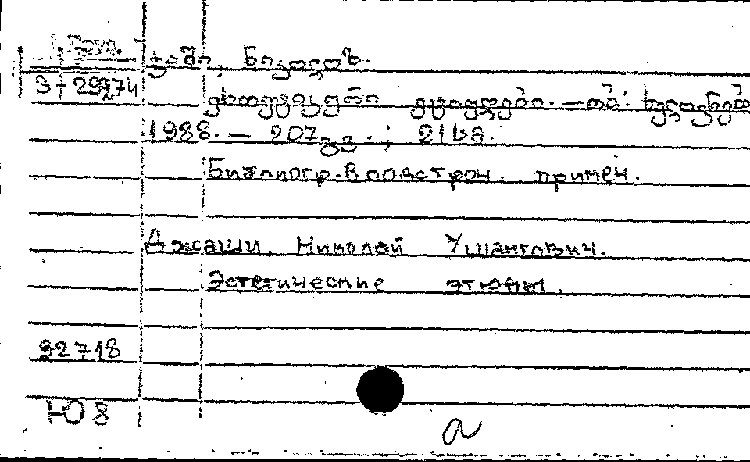 ჯაში, ნიკოლოზ.
3-29974
ესთეტიკური ეტიუდები. — თბ: ხელოვნება
1988. — 207 გვ. ; 21 სმ.
Библиогр. в подстроч. примеч.
Джаши, Николай Ушангович.
Эстетические этюды.
32718
Ю8
а